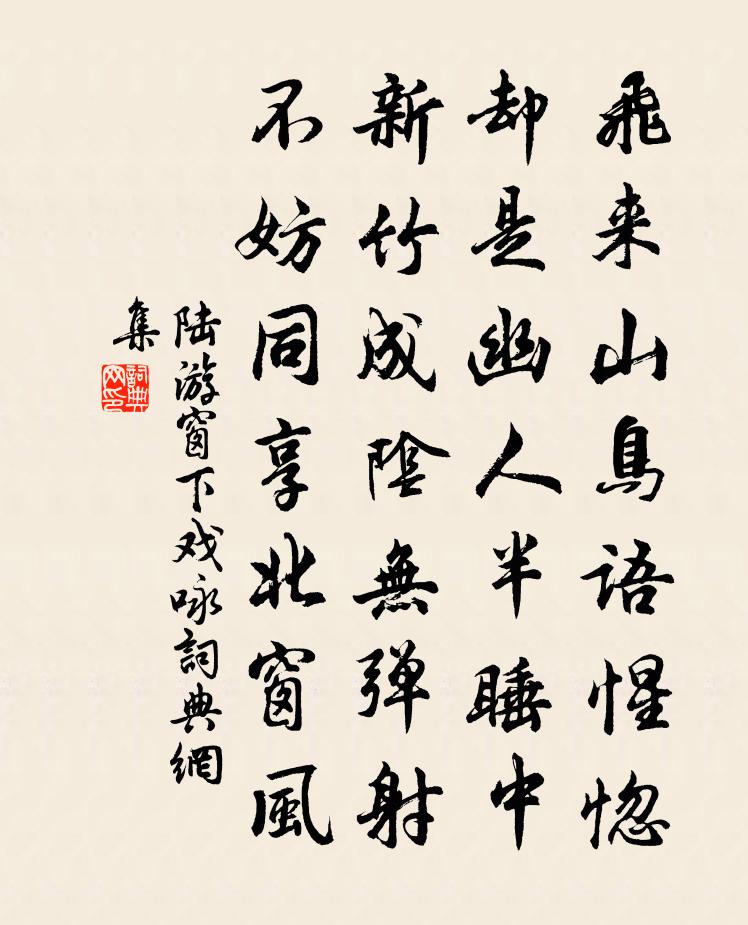 飛来山鳥語惺惚
却是幽人半睡中
新竹成陰無弹射
不妨同享北窗風
陆游窗下戏咏詞典網
集
詞典
网印